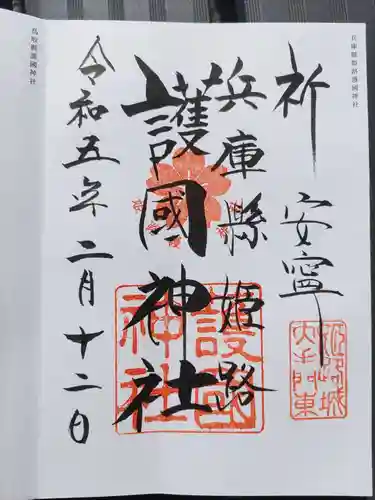 兵庫縣姫路護國神社
祈 安寧
姫路城
大手門東
兵庫縣姫路
護國神社
護國
神社
令和五年二月十二日
鳥取縣護國神社